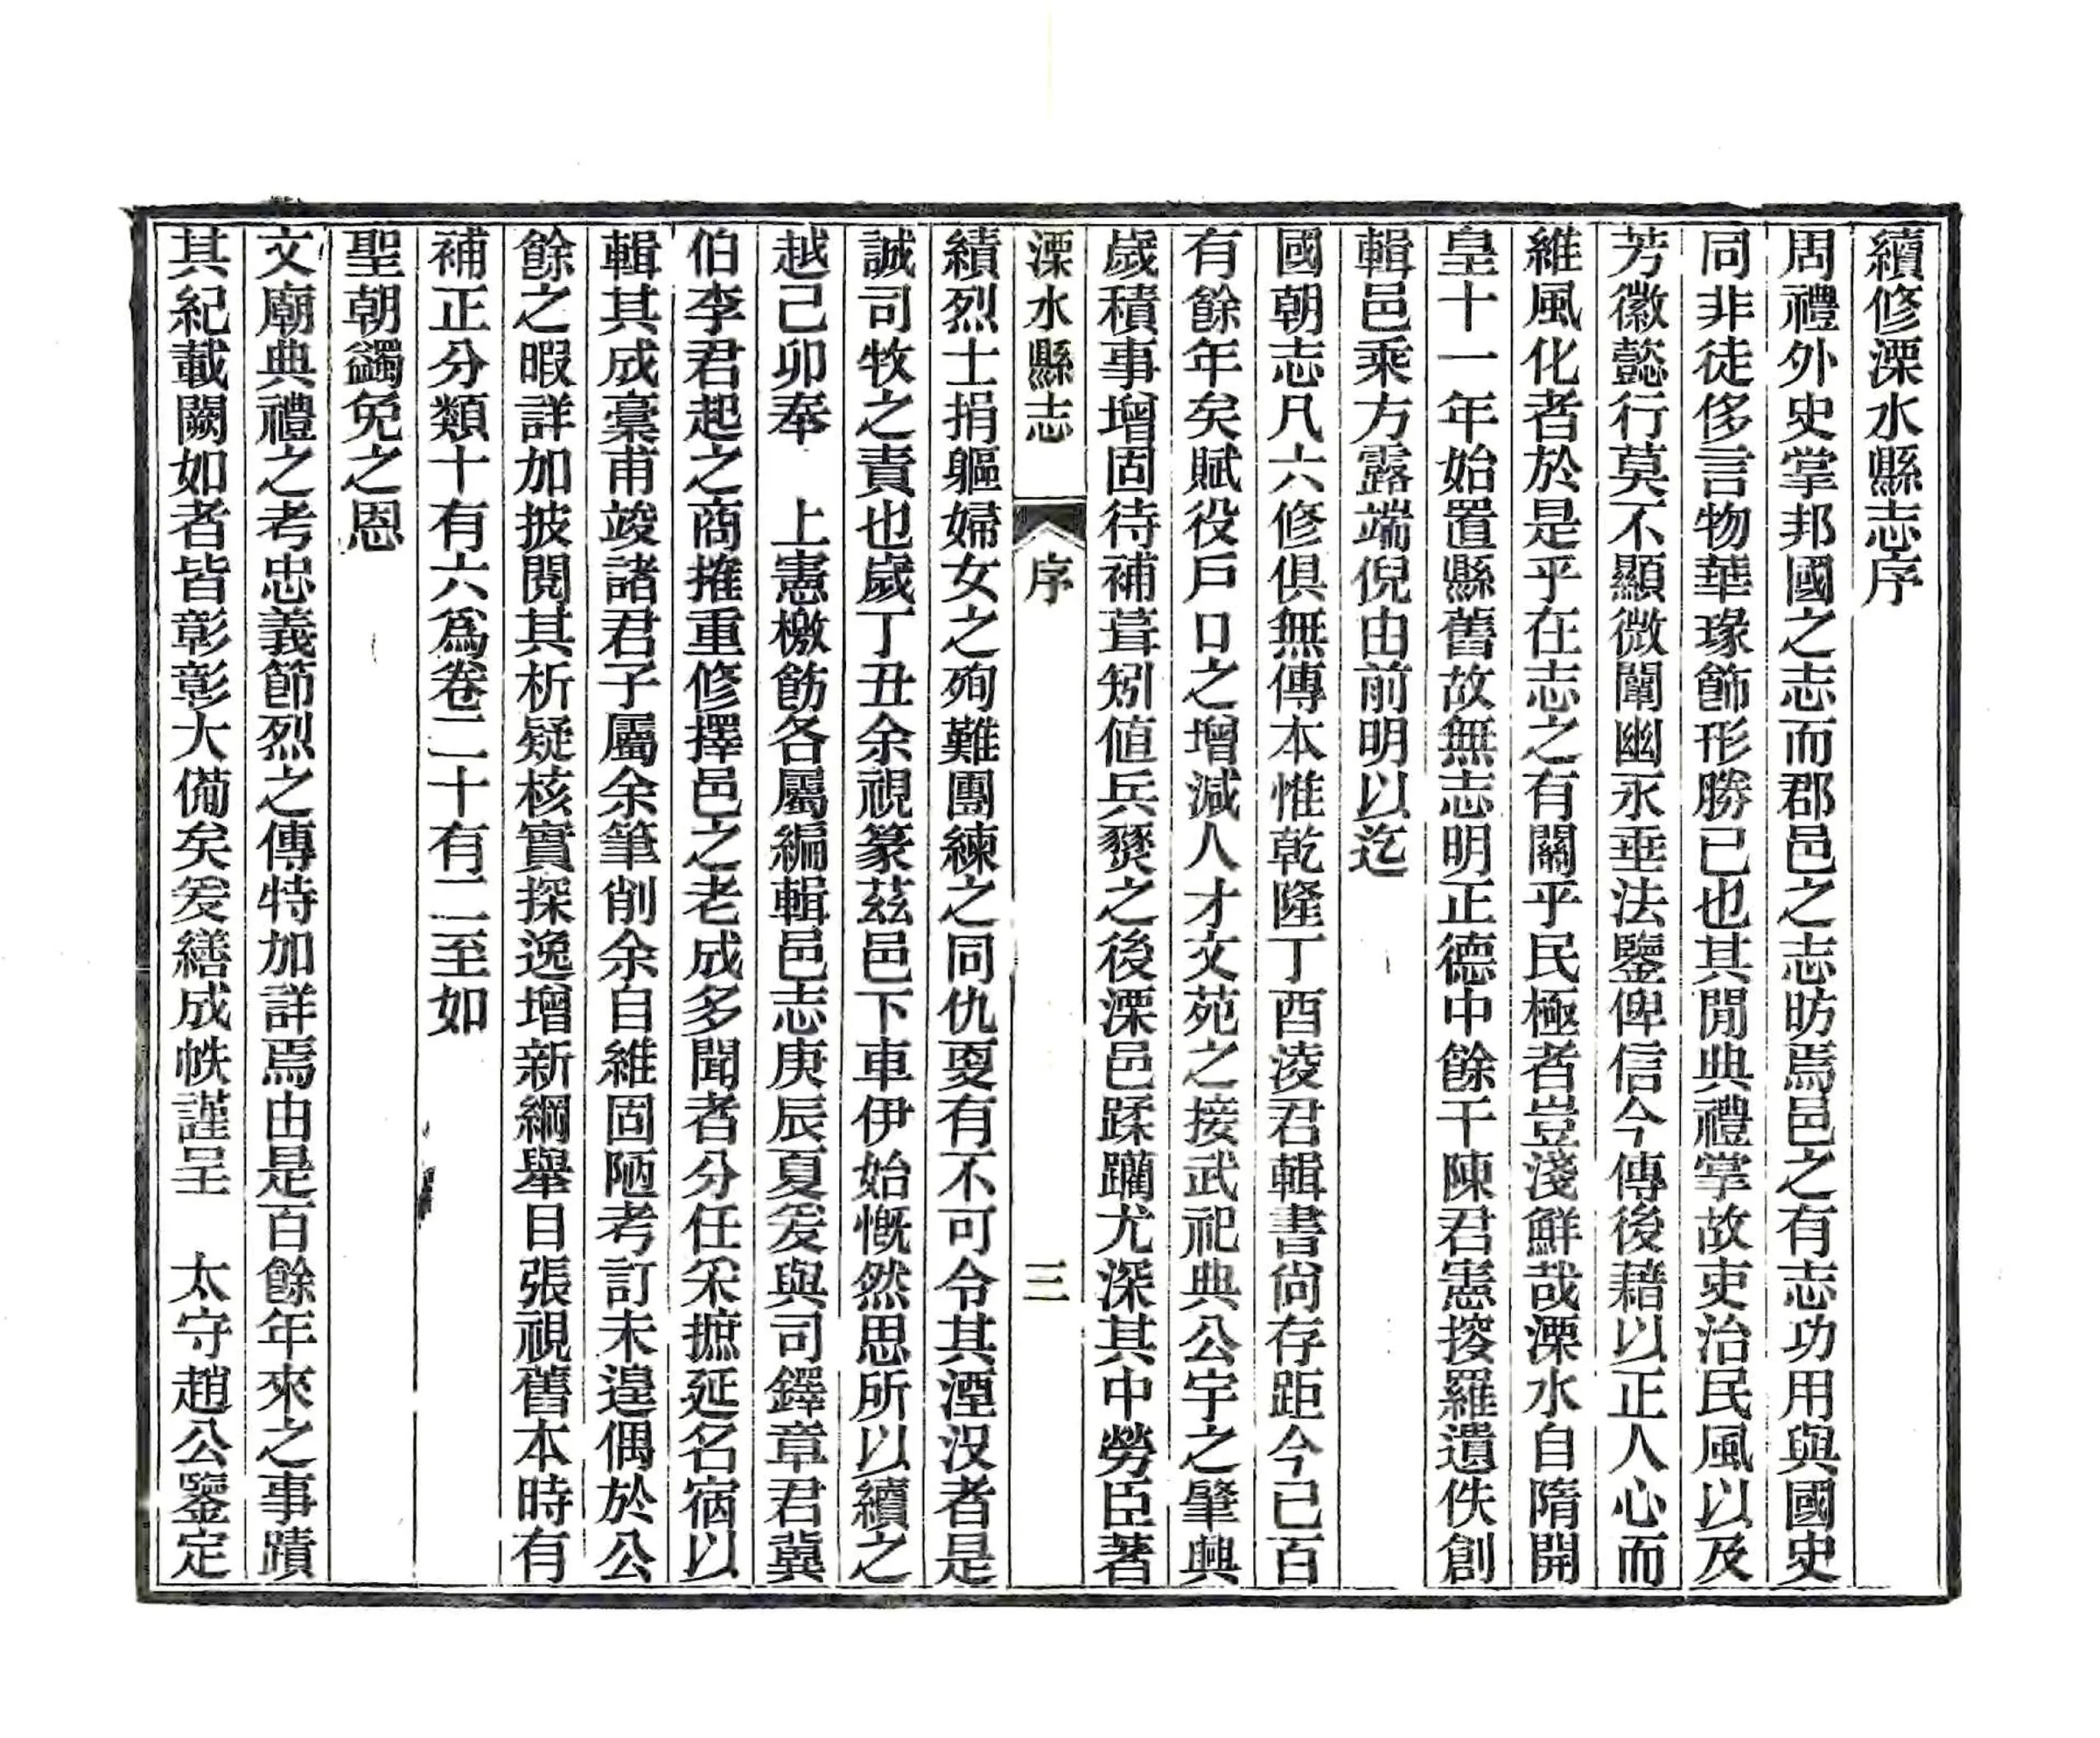 續修溧水縣志序
周禮外史掌邦國之志而郡邑之志昉焉邑之有志功用與國史
同非徒侈言物華瑑飾形勝已也其閒典禮掌故吏治民風以及
芳徽懿行莫不顯微闡幽永垂法鑒俾信今傳後藉以正人心而
維風化者於是乎在志之有關乎民極者豈淺鮮哉溧水自隋開
皇十一年始置縣舊故無志明正德中餘干陳君憲搜羅遺佚創
輯邑乘方露端倪由前明以迄
國朝志凡六修俱無傳本惟乾隆丁酉淩君輯書尙存距今已百
有餘年矣賦役戶口之增減人才文苑之接武祀典公宇之肇興
歲積事增固待補葺矧値兵燹之後溧邑蹂躪尤深其中勞臣著
溧水縣志
序
三
績烈士捐軀婦女之殉難團練之同仇更有不可令其湮沒者是
誠司牧之責也歲丁丑余視篆茲邑下車伊始慨然思所以續之
越己卯奉　上憲檄飭各屬編輯邑志庚辰夏爰與司鐸章君冀
伯李君起之商搉重修擇邑之老成多聞者分任采摭延名宿以
輯其成藁甫竣諸君子屬余筆削余自維固陋考訂未遑偶於公
餘之暇詳加披閱其析疑核實探逸增新綱舉目張視舊本時有
補正分類十有六爲卷二十有二至如
聖朝蠲免之恩
文廟典禮之考忠義節烈之傳特加詳焉由是百餘年來之事蹟
其紀載闕如者皆彰彰大備矣爰繕成帙謹呈　太守趙公鑒定